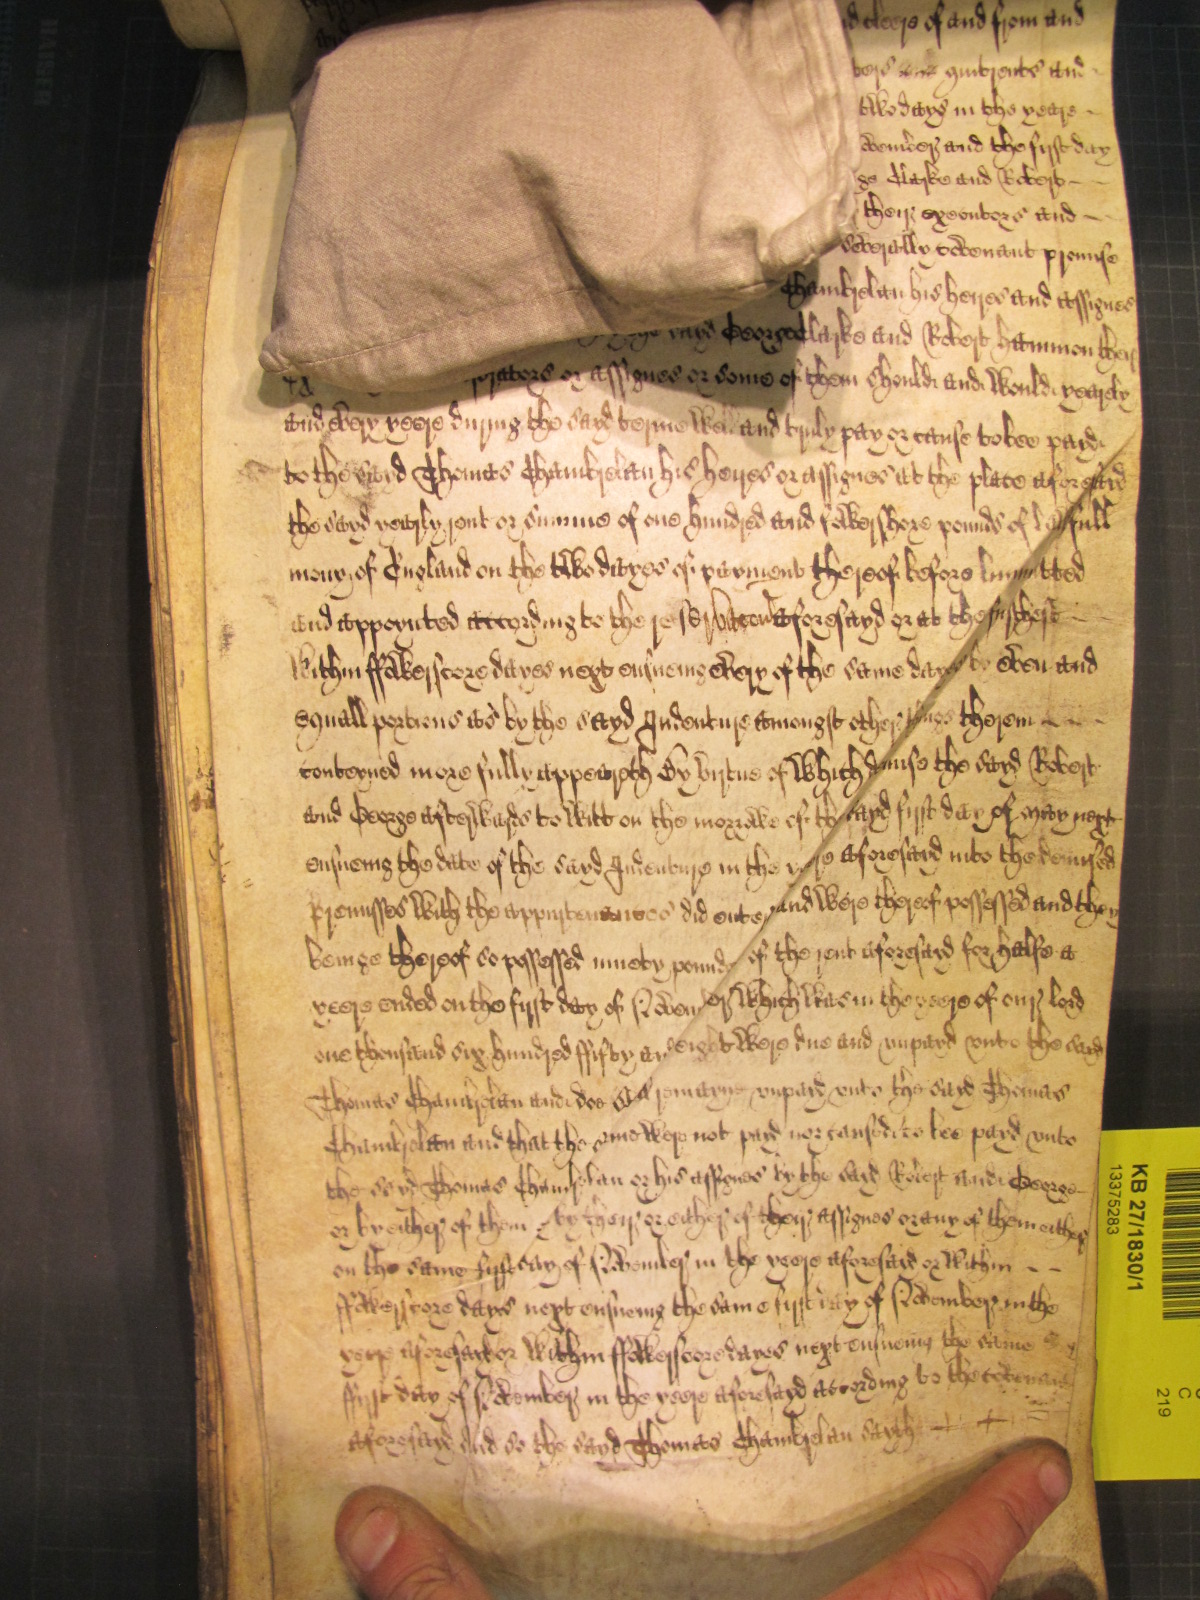 cleere of and from and
and
two dayes in the yeare
and the first day
Clarke and Robert
their executors and
severally covenant promise
Chamberlan his heires and assignes
sayd George Clarke and Robert Hammon their
or assignes or some of them should and would yearely
and every yeere during the sayd terme well and truly pay or cause to bee payd
to the sayd Thomas Chamberlan his heires or assignes at the place aforesayd
the sayd yearly rent or summe of one hundred and fowershore pounds of lawfull
mony of England on the two dayes of payment thereof before limmitted
and appoynted according to the reservacon aforesayd or at the furthest
within ffowerscore dayes next ensueing every of the same dayes by even and
equall portions as by the sayd Indenture amongst other things therein
conteyned more fully appeareth By virtue of which demise the sayd Robert
and George afterwards to witt on the morrowe of the sayd first day of may next
ensueing the date of the sayd Indenture in the yeere aforesayd into the demised
premisses with the appurtenances did enter and were thereof possessed and they
beinge thereof so possessed ninety pounds of the rent aforesayd for halfe a
yeere ended on the first day of November which was in the yeere of our lord
one thousand six hundred ffifty and eight were due and unpayd unto the sayd
Thomas Chamberlan and doe still remayne unpayd unto the sayd Thomas
Chamberlan and that the same were not payd nor caused to bee payd unto
the sayd Thomas Chamberlan or his assignes by the sayd Robert and George
or by either of them by their or either of their assignes or any of them either
on the same first day of November in the yeere aforesayd or within
ffowerscore dayes next ensueing the same first day of November in the
yeere aforesayd or within ffowerscore dayes next ensueing the same
first day of November in the yeere aforesayd according to the covenant
aforesayd And so the sayd Thomas Chamberlan sayth
KB 27/1830/1
13375283
C
219